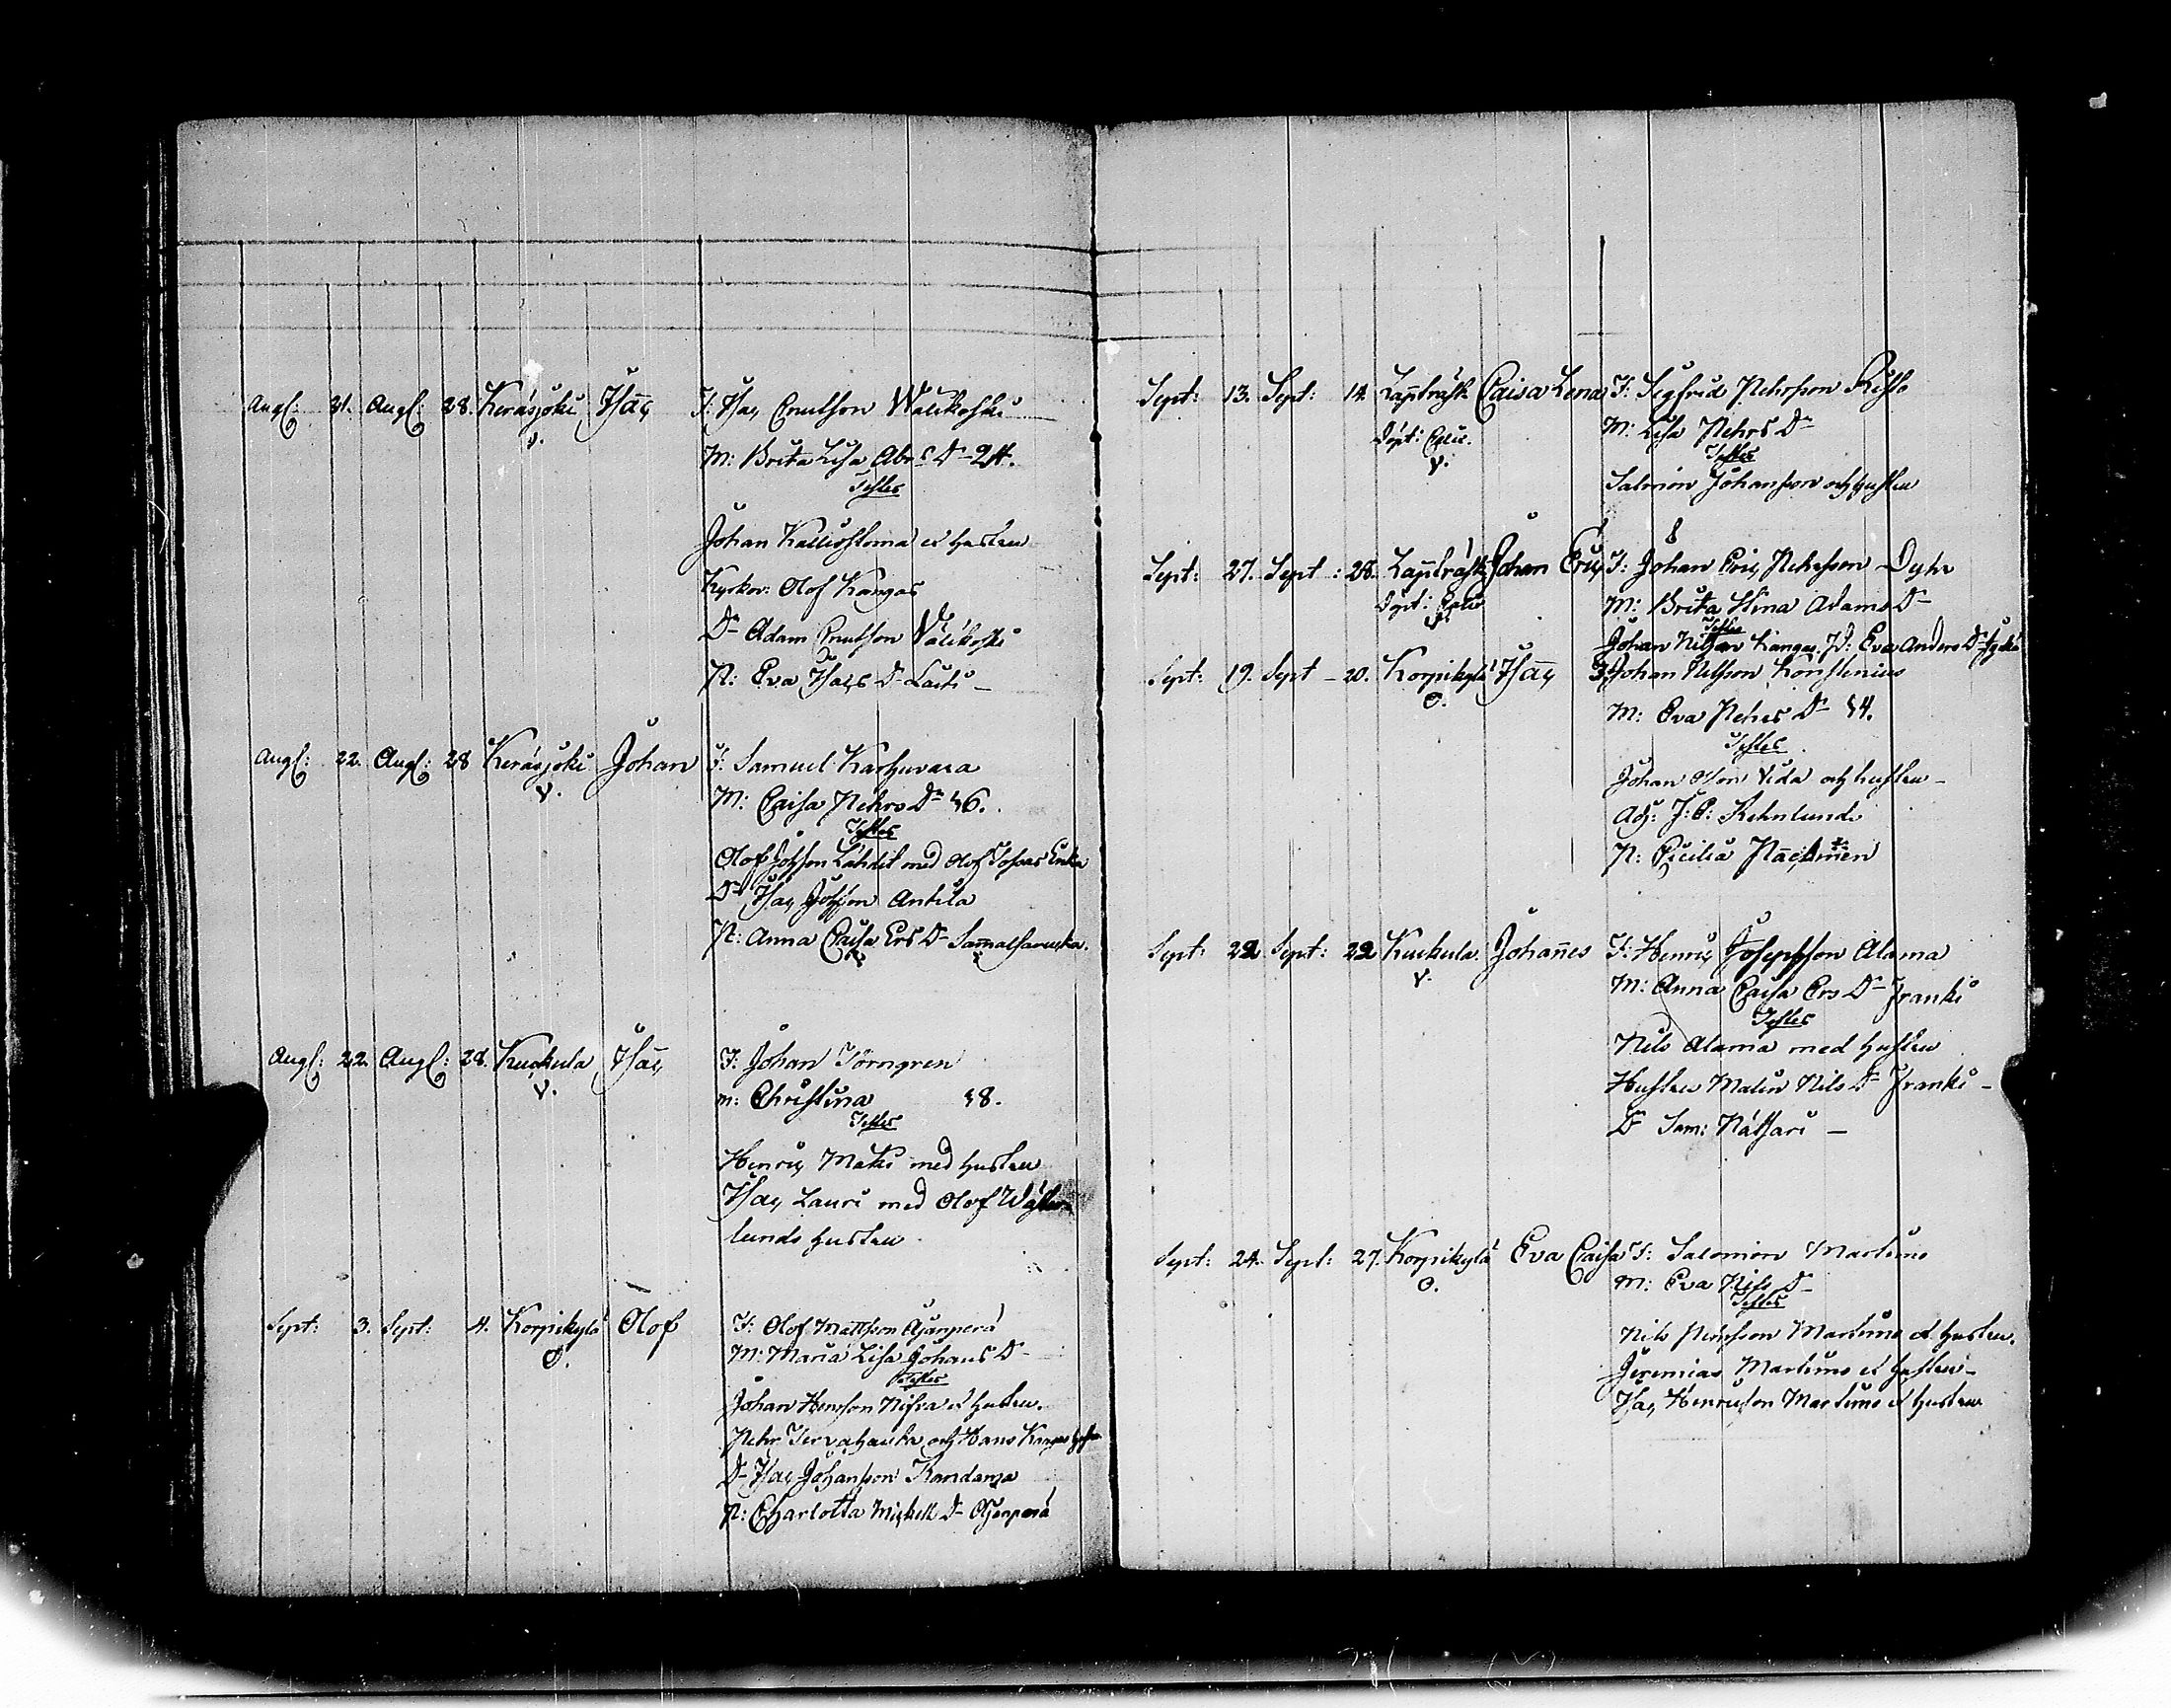 Aug: 21. Aug: 28. Keräsjoki Isac F: Isac Enutsson Wälikoski
v. M: Brita Lisa Abr:s Dr 24.
Testes
Johan Kalliostoma et hustru
Kyrkov: Olof Kangas
Dr Adam Enutsson Wälikoski
P: Eva Isacs Dr Laiti
Aug: 22. Aug: 28 Keräsjoki Johan F: Samuel Karhuvara
v. M: Caisa Pehrs Dr 46.
Testes
Olof Johsson Lahdit med Olof Tobias
Dr Isac Johsson Antila
P: Anna Caisa Ers Dr
Aug: 22. Aug: 28. Kuckula Isac F: Johan Törngren
v. m: Christina 48.
Testes
Henric Maki med hustru
Isac Lauri med Olof Wäster
lunds hustru
Sept: 3. Sept: 4. Korpikylä Olof F: Olof Mattsson Äjänperä
O. M: Maria Lisa Johans Dr
Testes
Johan Henrsson Nifva et hustru.
Pehr Tervahauta och Hans Kangas
Dr Isac Johansson Kandama
P: Charlotta Mickels Dr Äjänperä
Sept: 13. Sept: 14. Lappträsk Caisa Lena F: Sigfrid Pehrsson Risto
Döpt: M: Lisa Pehrs Dr
v. Testes
Salmon Johansson och hustru
Sept: 27. Sept: 28. Lappträsk Johan Eric F: Johan Eric Pehrsson Dyhr
Döpt: M: Brita Stina Adams Dr
v. Testes
Johan Nilsson Kangas. P: Eva Anders Dr
Sept: 19. Sept 20. Korpikylä Isac F: Johan Nilsson Korstenius
O. M: Eva Pehrs Dr 44.
Testes
Johan Olson Vida och hustru
Adj: J: O: Rehnlund
P: Cecilia
Sept: 22 Sept: 22 Kuckula Johannes F: Henric Josephsson Alama
v. M: Anna Caisa Ers Dr Franki
Testes
Nils Alama med hustru
Hustru Malin Nils Dr Franki
Dr Sam: Nätsari
Sept: 24. Sept: 27. Korpikylä Eva Caisa F: Salomon Martimo
O. M: Eva Nils Dr
Testes
Nils Pehrsson Martimo et hustru.
Jeremias Martimo et hustru
Isac Henricsson Martimo et hustru